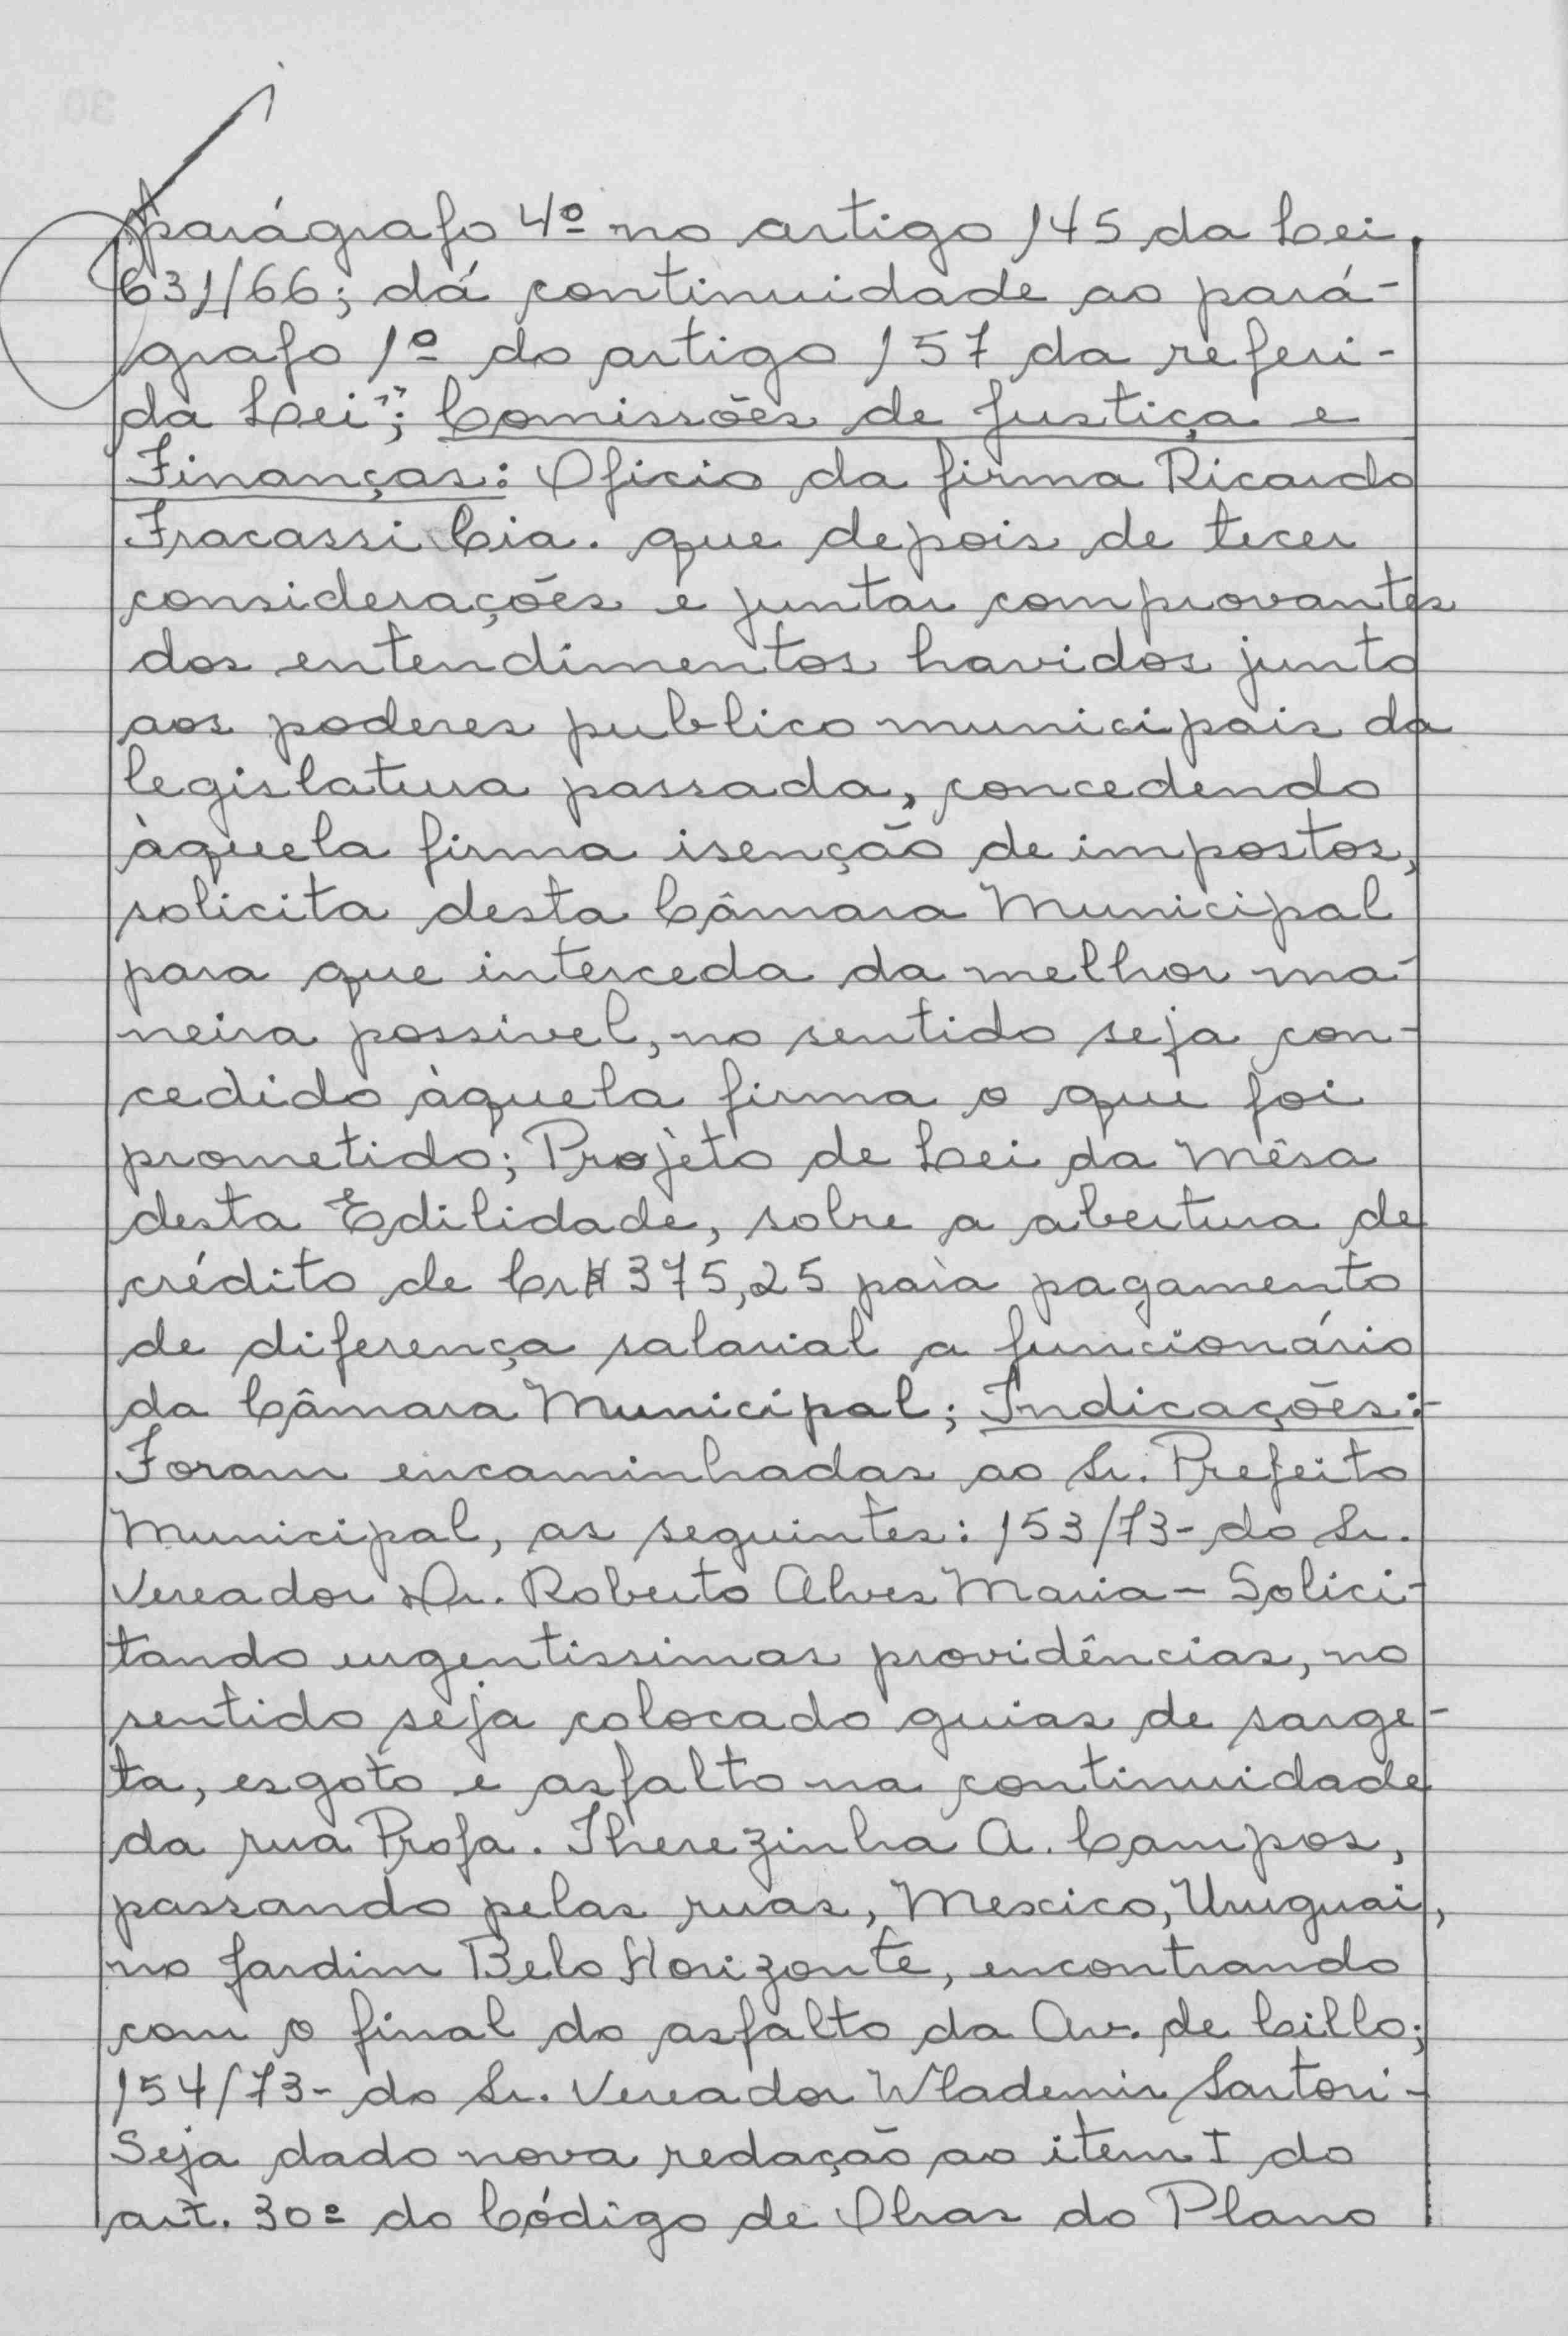 parágrafo 4º no artigo 145 da Lei
631/66; dá continuidade ao pará-
grafo 1º do artigo 157 da referi-
da Lei"; Comissões de Justiça e
Finanças: Oficio da firma Ricardo
Fracassi Cia. que depois de tecer
considerações e juntar comprovantes
dos entendimentos havidos junto
aos poderes publico municipais da
legislatura passada, concedendo
àquela firma isenção de impostos,
solicita desta Câmara Municipal
para que interceda da melhor ma-
neira possivel, no sentido seja con-
cedido àquela firma o que foi
prometido; Projéto de Lei da Mêsa
desta Edilidade, sobre a abertura de
crédito de Cr$ 375,25 para pagamento
de diferença salarial a funcionário
da Câmara Municipal; Indicações:-
Foram encaminhadas ao Sr. Prefeito
Municipal, as seguintes: 153/73- do Sr.
Vereador Dr. Roberto Alves Maria - Solici-
tando urgentissimas providências, no
sentido seja colocado guias de sarge-
ta, esgoto e asfalto na continuidade
da rua Profa. Therezinha A. Campos,
passando pelas ruas, Mexico, Uruguai,
no Jardim Belo Horizonte, encontrando
com o final do asfalto da Av. de Cillo;
154/73- do Sr. Vereador Wlademir Sartori-
Seja dado nova redação ao item I do
art. 30º do Código de Obras do Plano